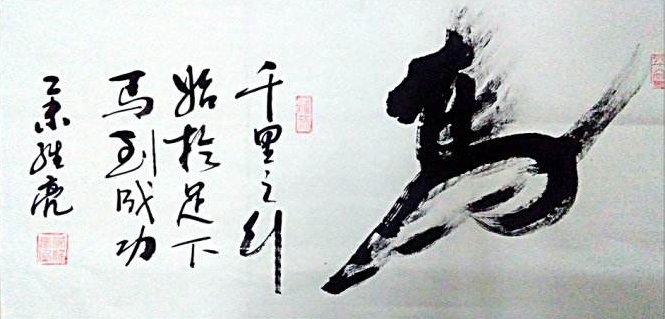 馬
千里之行
始於足下
馬到成功